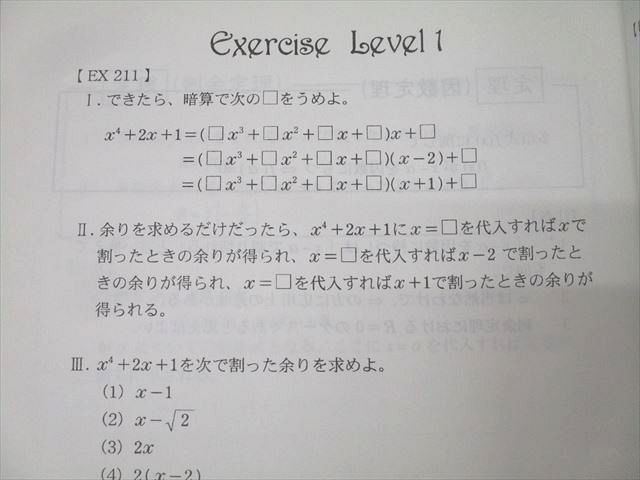 Exercise Level 1
【EX 211】
Ⅰ. できたら、暗算で次の□をうめよ。
x⁴+2x+1=(□x³+□x²+□x+□)x+□
=(□x³+□x²+□x+□)(x-2)+□
=(□x³+□x²+□x+□)(x+1)+□
Ⅱ. 余りを求めるだけだったら、x⁴+2x+1にx=□を代入すればxで
割ったときの余りが得られ、x=□を代入すればx-2 で割ったと
きの余りが得られ、x=□を代入すればx+1で割ったときの余りが
得られる。
Ⅲ. x⁴+2x+1を次で割った余りを求めよ。
(1) x-1
(2) x-√2
(3) 2x
(4) 2(x-2)